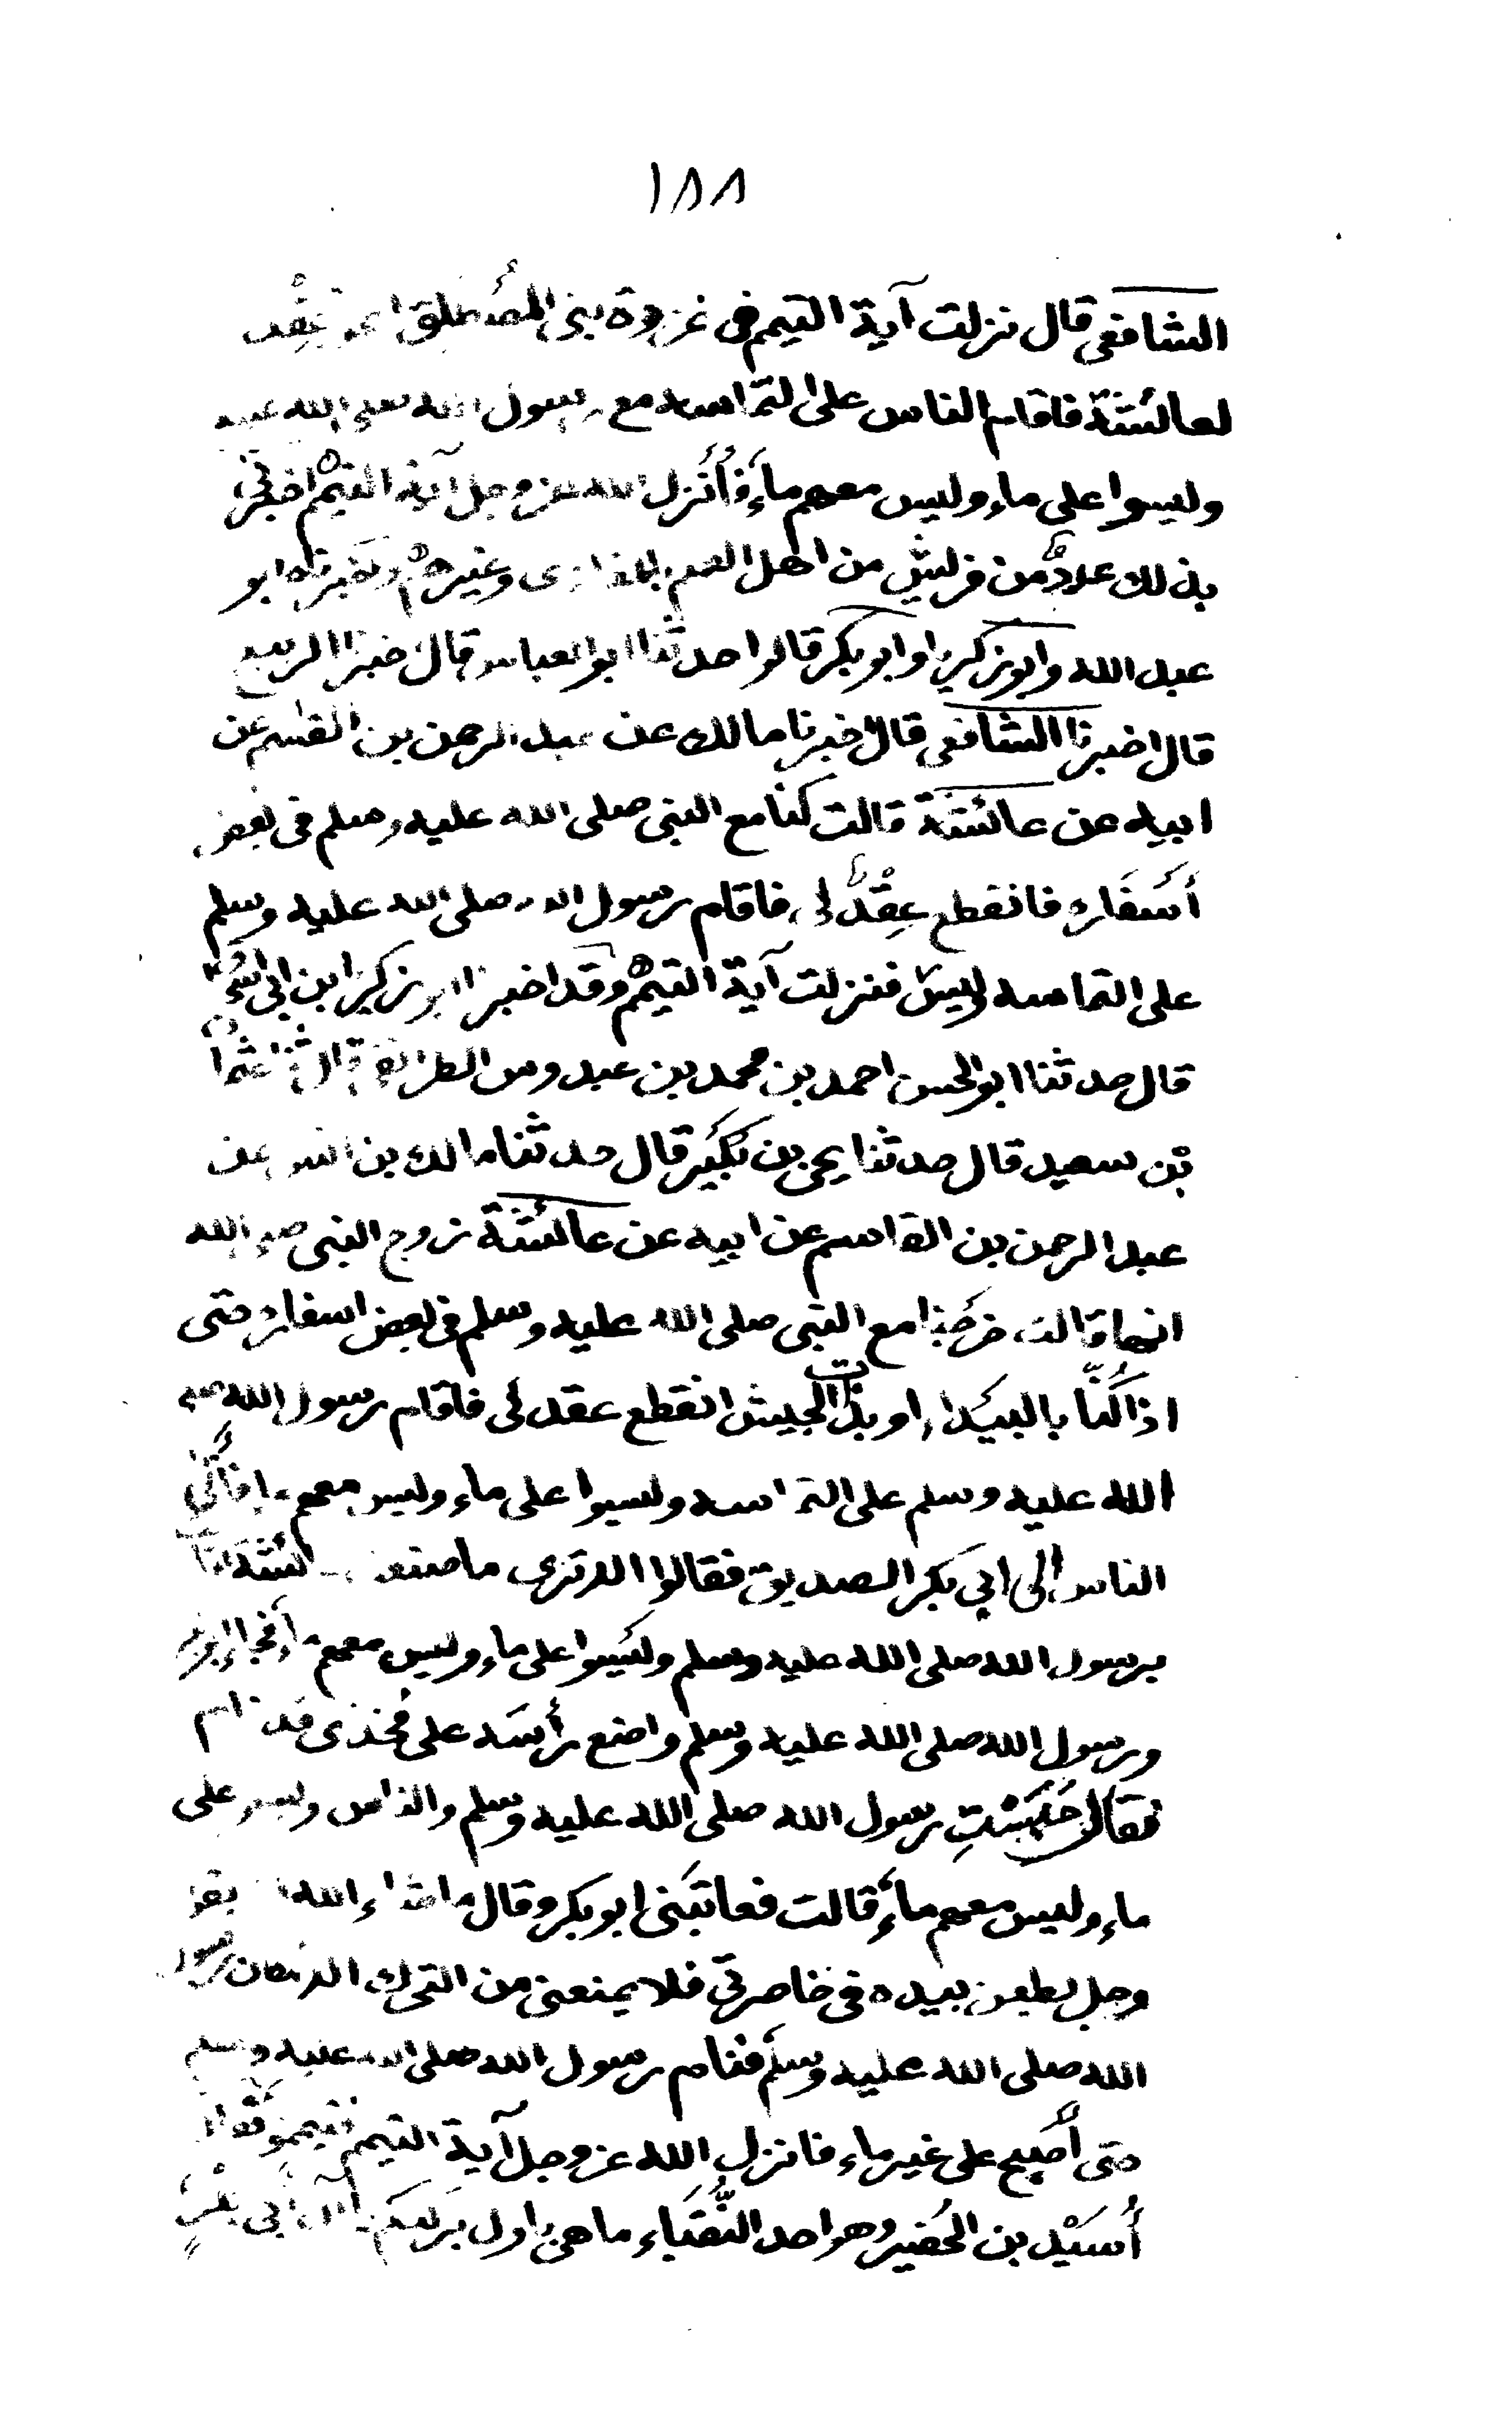 ١٨٨
الشافعى قال نزلت آية التيمم فى غزوة بنى المُصطلق عِقْد
لعائشة فاقام الناس على التماسه مع رسول الله صلى الله عليه
وليسوا على ماء وليس معهم ماءٌ فأنزل الله عز وجل آية التيمم اخبرنى
بذلك عددٌ من قريش من اهل العلم بالمغازى وغيرهم وأخبرنا ابو
عبد الله وابو زكريا وابو بكر قالوا حدثنا ابو العباس قال اخبرنا الربيع
قال اخبرنا الشافعى قال اخبرنا مالك عن عبد الرحمن بن القاسم عن
ابيه عن عائشة قالت كنا مع النبى صلى الله عليه وسلم فى بعض
أسْفَاره فانقطع عِقْدٌ لى فاقام رسول الله صلى الله عليه وسلم
على التماسه وليسَ فنزلت آية التيمم وقد اخبرنا ابو زكريا ابن ابى اسحق
قال حدثنا ابو الحسن احمد بن محمد بن عبدوس الطرائفى قال ثنا عثمان
بن سعيد قال حدثنا يحيى بن بُكَيْر قال حدثنا مالك بن انس عن
عبد الرحمن بن القاسم عن ابيه عن عائشة زوج النبى صلى الله
انها قالت خرجنا مع النبى صلى الله عليه وسلم فى بعض اسفاره حتى
اذا كُنَّا بالبيداء او بذات الجيش انقطع عقد لى فاقام رسول الله صلى
الله عليه وسلم على التماسه وليسوا على ماء وليس معهم ماء فأتى
الناس الى ابي بكر الصديق فقالوا الا ترى ما صنعت عائشة اقامت
برسول الله صلى الله عليه وسلم وليسوا على ماء وليس معهم ماء فجاء ابو بكر
ورسول الله صلى الله عليه وسلم واضع رأسَه على فخذى قد نام
فقال حَبَسْتِ رسول الله صلى الله عليه وسلم والناس وليسو على
ماء وليس معهم ماءٌ قالت فعاتبَنى ابو بكر وقال ما شاء الله ان يقول
وجعل يطعن بيده فى خاصرتي فلا يمنعنى من التحرك الا مكان رسول
الله صلى الله عليه وسلّم فنام رسول الله صلى الله عليه وسلم
حتى أصبح على غير ماء فانزل الله عز وجل آية التيمم فتيمموا فقال
أُسَيْد بن الحُضير وهو احد النُّقَبَاء ما هى باول بركتكم يا آل أبى بكْرٍ